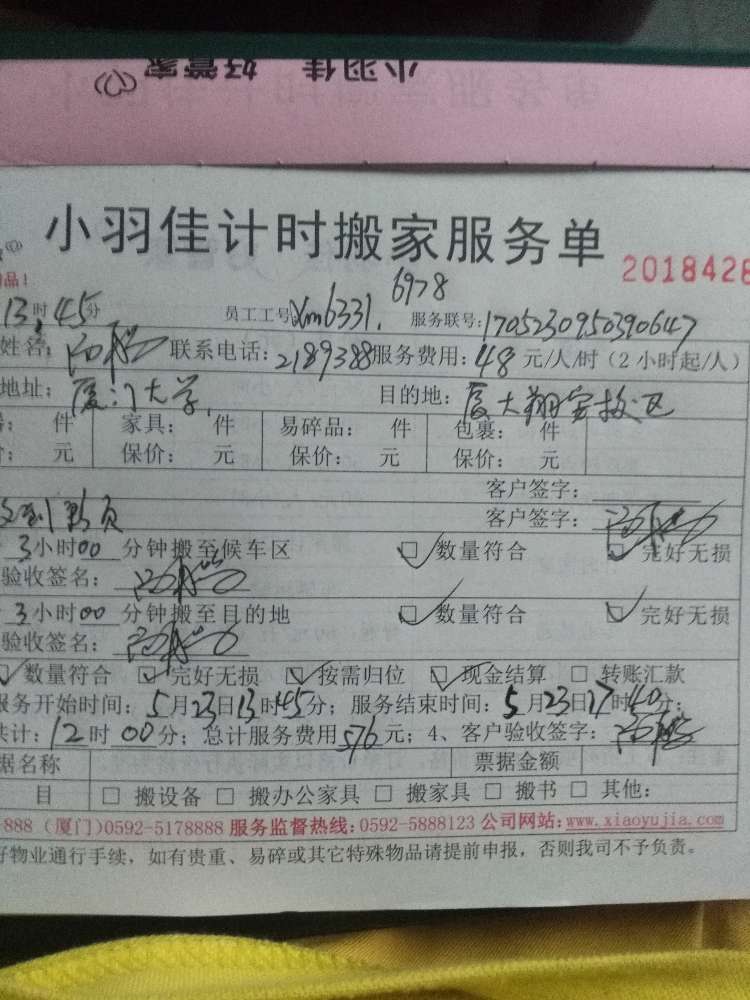 小羽佳 好管家
小羽佳计时搬家服务单
2018428
品！
13时45分 员工工号: Xm6331. 6978 服务联号: 1705230950390647
姓名: 联系电话: 2189388 服务费用: 48 元/人/时 (2 小时起/人)
地址: 厦门大学, 目的地: 厦大翔安校区
件 家具: 件 易碎品: 件 包裹: 件
元 保价: 元 保价: 元 保价: 元
客户签字:
客户签字:
3小时00分钟搬至候车区 ☑ 数量符合 ☑ 完好无损
验收签名:
3小时00分钟搬至目的地 ☑ 数量符合 ☑ 完好无损
验收签名:
☑ 数量符合 ☑ 完好无损 ☑ 按需归位 ☑ 现金结算 □ 转账汇款
服务开始时间: 5月23日13时45分; 服务结束时间: 5月23日17时40分;
共计: 12时00分; 总计服务费用576元; 4、客户验收签字:
据名称 票据金额
目 □ 搬设备 □ 搬办公家具 □ 搬家具 □ 搬书 □ 其他:
888 (厦门)0592-5178888 服务监督热线: 0592-5888123 公司网站: www.xiaoyujia.com
好物业通行手续, 如有贵重、易碎或其它特殊物品请提前申报, 否则我司不予负责。